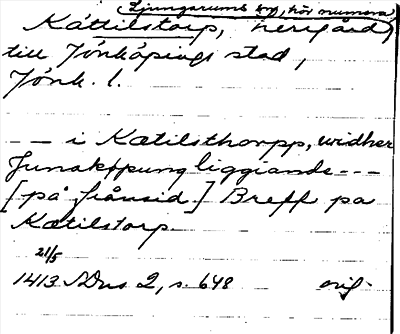 Ljungarums sn, hör numera
Kättilstorp, herrgård,
till Jönköpings stad,
Jönk. l.
— — i Kætilsthorpp, widher
Junakøpung liggiande - - -
[på frånsid.] Breff pa
Kætilstorp.
21/5
1413 SDns 2, s. 648 orig.